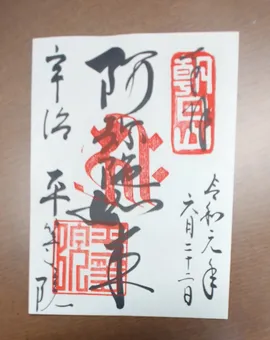 奉拝
朝日山
令和元年
六月二十二日
阿弥陀如来
宇治 平等院